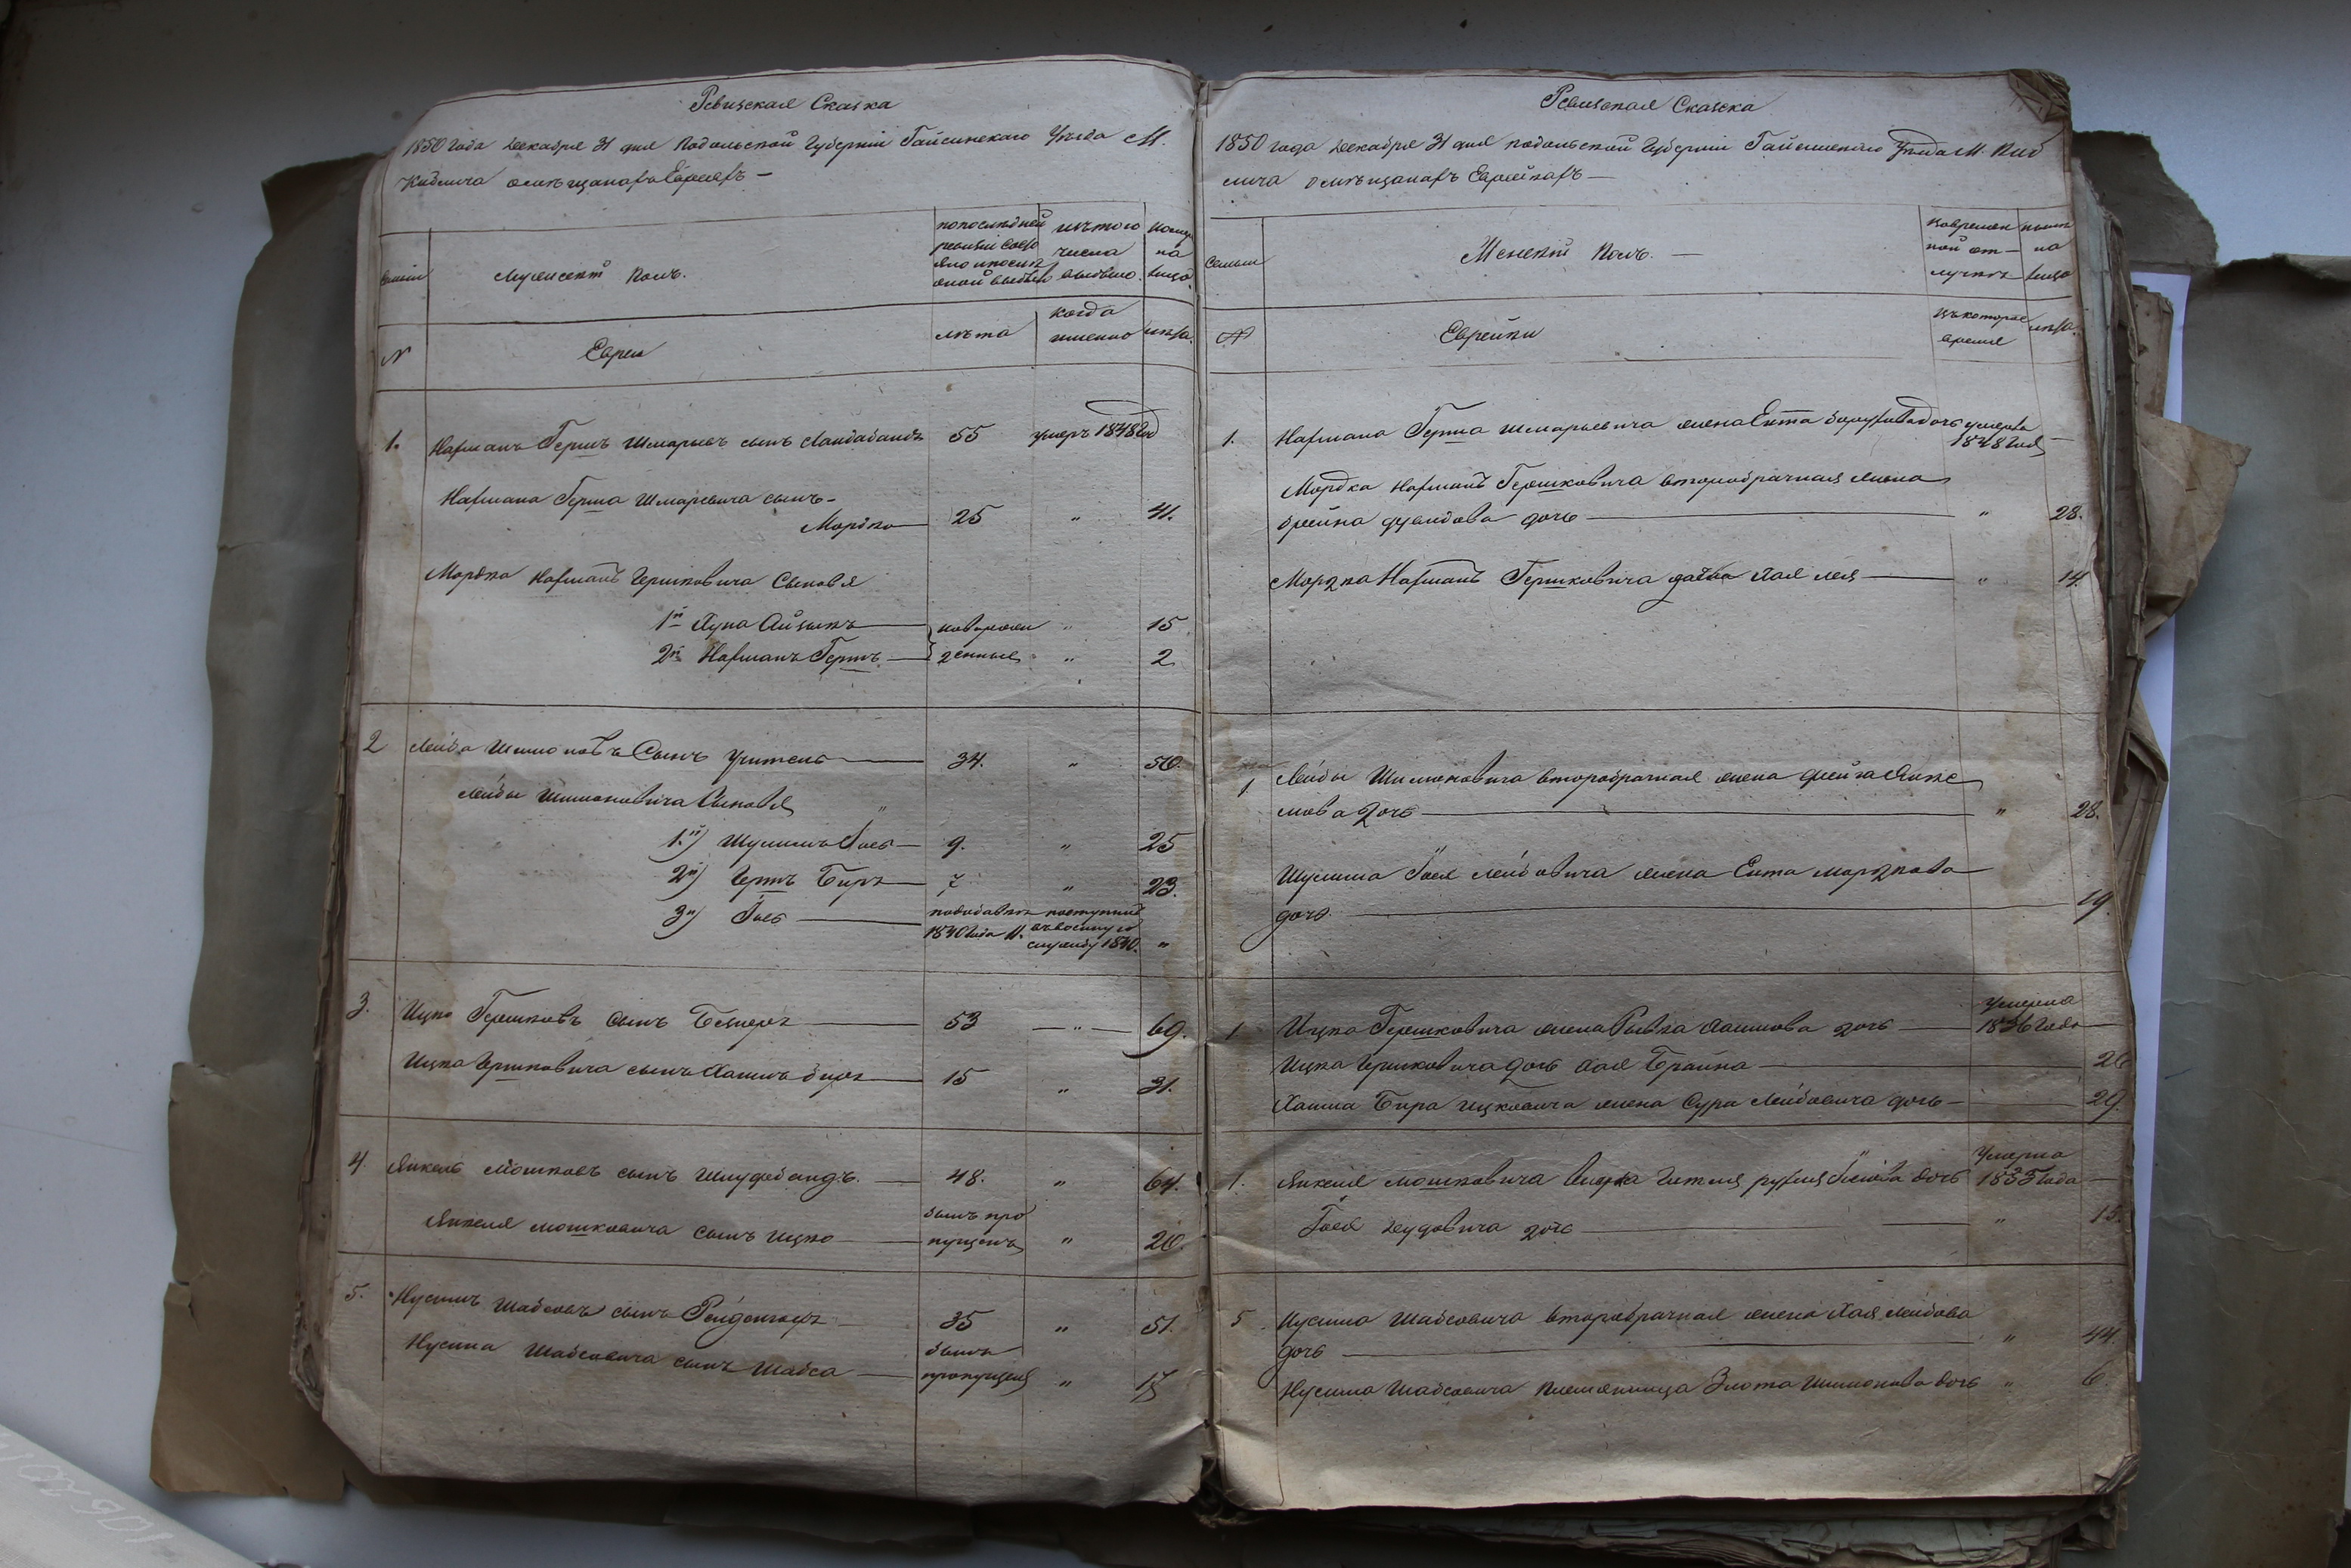 Ревизская Сказка
1850 года Декабря 31 дня Подольской Губернии Гайсинскаго Уезда М.
Кублича о мещанахъ Евреяхъ —
Семьи
Мужескій Полъ.
по последней
ревизіи состо
яло и после
оной выбыло
изъ того
числа
выбыло.
Ныне
на
лицо.
№
Евреи
лета
когда
именно
лета.
1. Нахманъ Гершъ Шмарьевъ сынъ 55 умеръ 1848 год
Нахмана Герша Шмарьевича сынъ —
Мордко 25 " 41.
Мордка Нахманъ Гершковича Сыновья
1й Айзыкъ новорож " 15
2й Нахманъ Гершъ денные " 2
2 Лейба Шимоновъ Сынъ Учитель 34. " 50.
Лейбы Шимоновича Сыновья "
1й) Шулимъ 9. " 25
2й) Гершъ Беръ 7 " 23.
3й) поступилъ
1840 года 11. въ военную
службу 1840. "
3. Ицко Гершковъ сынъ 53 — " — 69.
Ицка Гершковича сынъ Хаимъ Беръ 15 " 31.
4. Янкель Мошковъ сынъ 48. " 64.
Янкеля Мошковича сынъ Ицко былъ про
пущенъ " 20.
5. Нусинъ Шабсовъ сынъ 35 " 51.
Нусина Шабсовича сынъ Шабса былъ
пропущенъ " 17
Ревизская Сказка
1850 года Декабря 31 дня Подольской Губернии Гайсинскаго Уезда М. Куб
лича о мещанахъ Еврейкахъ —
Семьи
Женскій Полъ. —
Во времен
ной от-
лучке
Ныне
на
лицо
№
Еврейки
съ котораго
времени
лета.
1. Нахмана Герша Шмарьевича жена Ента дочь умерла
1848 года —
Мордка Нахманъ Гершковича второбрачная жена
Брейна дочь — " 28.
Мордка Нахманъ Гершковича дочь Хая Лея — " 14.
1 Лейбы Шимоновича второбрачная жена Фейга Янке
лова дочь — " 28.
Шулима Лейбовича жена Ента Мордкова
дочь. — 19.
1 Ицка Гершковича жена Ривка Хаимова дочь — Умерла
1836 года —
Ицка Гершковича дочь Хая Брайна — 26
Хаима Бера Ицковича жена Сура Лейбовича дочь — 29.
1. Янкеля Мошковича жена дочь Умерла
1835 года —
дочь — " 15.
5 Нусина Шабсовича второбрачная жена Хая Лейбова
дочь — " 44.
Нусина Шабсовича племянница Злота Шимонова дочь " 6